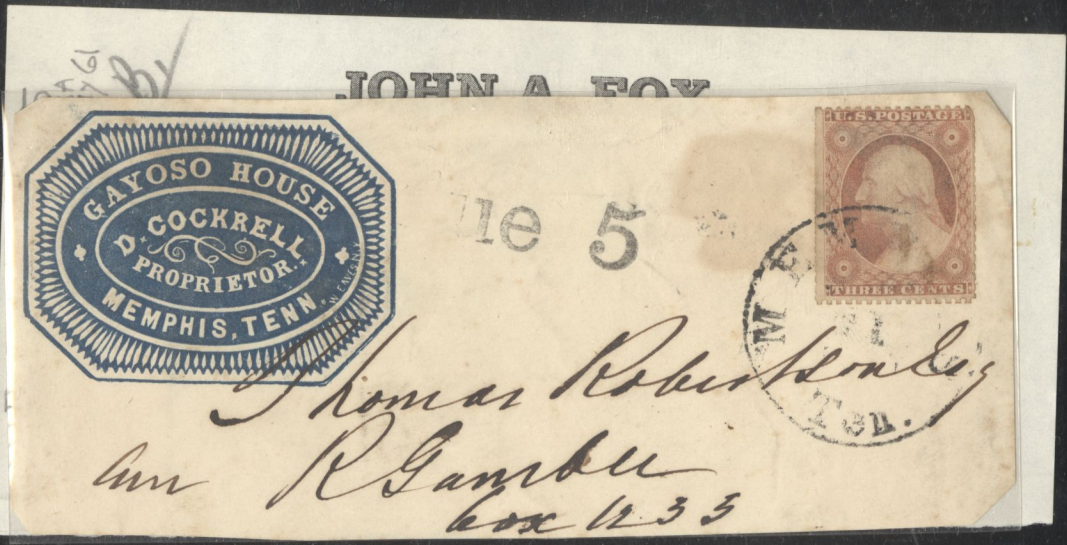 By
61
JOHN A. FOX
GAYOSO HOUSE
D. COCKRELL
PROPRIETOR.
MEMPHIS, TENN.
ue 5
U.S. POSTAGE
THREE CENTS
MEM
Ten.
Thomas Robertson Esq
R Gamble
box 1233